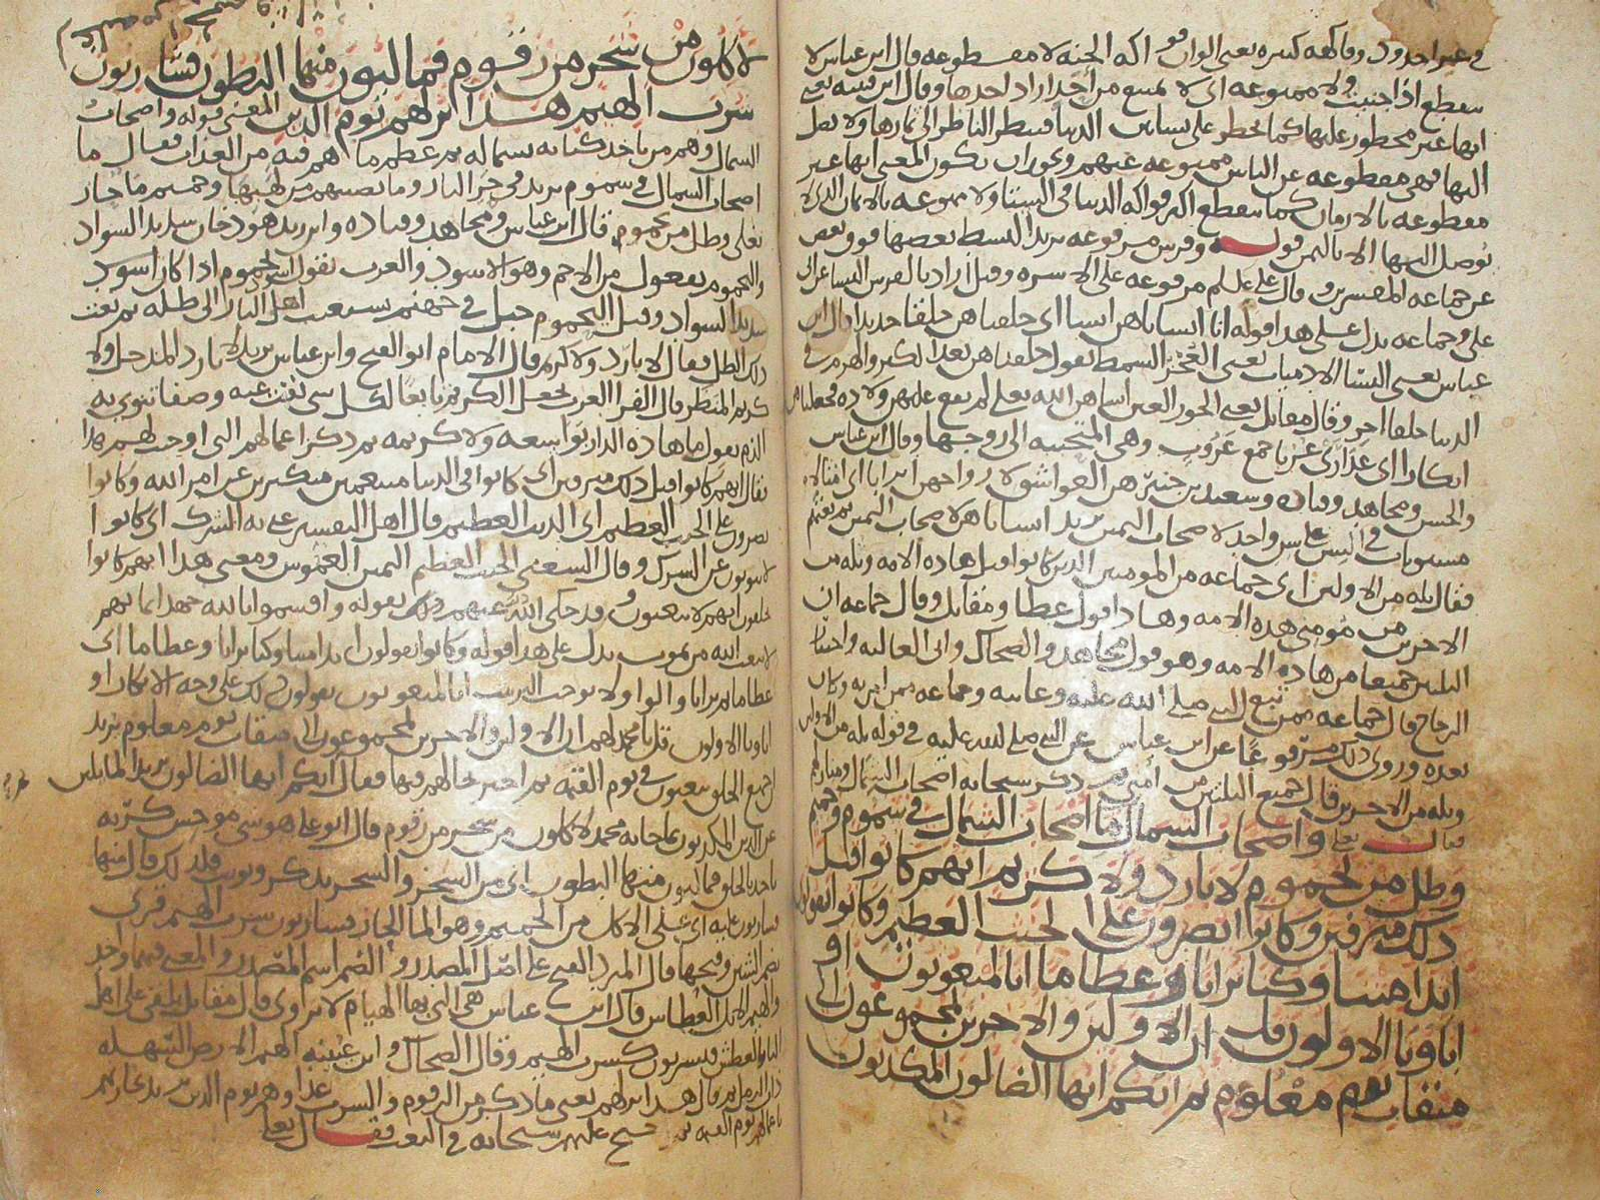 في غير اخدود وفاكهة كثيرة يعني الوان فواكه الجنة لا مقطوعة قال ابن عباس لا
ينقطع اذا جنيت ولا ممنوعة اي لا تمتنع من احد اراد اخدها وقال ابن قتيبة يعني
انها غير محظور عليها كما يحظر على بساتين الدنيا فينظر الناظر الى ثمارها ولا يصل
اليها فهي مقطوعة عن الناس ممنوعة عنهم ويجوز ان يكون المعنى انها غير
مقطوعة بالازمان كما ينقطع اكثر فواكه الدنيا في الشتا ولا ممنوعة بالاثمان الذي لا
توصل اليها الا بالثمن قوله وفرش مرفوعة يريد البسط بعضها فوق بعض
عن جماعة المفسرين وقال علي مرفوعة على الاسرة وقيل اراد بالفرش النسا عن ابي
علي وجماعة يدل على هذا قوله انا انشاناهن انشا اي خلقناهن خلقا جديدا قال ابن
عباس يعني النسا الادميات يعني العجز الشمط يقول خلقناهن بعد الكبر والهرم في
الدنيا خلقا اخر وقال مقاتل يعني الحور العين انشاهن الله تعالى لم يقع عليهن ولادة فجعلناهن
ابكارا اي عذارى عربا جمع عروب وهي المتحببة الى زوجها وقال ابن عباس
والحسن ومجاهد وقتادة وسعيد بن جبير هن العواشق لازواجهن اترابا اي امثالا
مستويات في السن على سن واحد لاصحاب اليمين يريد انشاناهن لاصحاب اليمين ثم نعتهم
فقال ثلة من الاولين اي جماعة من المومنين الذين كانوا قبل هاذه الامة وثلة من
الاخرين من مومني هذه الامة وهاذا قول عطا ومقاتل وقال جماعة ان
الثلتين جميعا من هاذه الامة وهو قول مجاهد والضحاك وابي العالية واختيار
الزجاج قال جماعة ممن تبع النبي صلى الله عليه وعاينه وجماعة ممن امن به وكان
بعده وروي ذلك مرفوعا عن ابن عباس عن النبي صلى الله عليه في قوله ثلة من الاولين
وثلة من الاخرين قال جميع الثلتين من امتي ثم ذكر سبحانه اصحاب الشمال
قال تعالى واصحاب الشمال ما اصحاب الشمال في سموم وحميم
وظل من يحموم لا بارد ولا كريم انهم كانوا قبل
ذلك مترفين وكانوا يصرون على الحنث العظيم وكانوا يقولون
ايذا متنا وكنا ترابا وعظاما انا لمبعوثون او
اباونا الاولون قل ان الاولين والاخرين لمجموعون الى
ميقات يوم معلوم ثم انكم ايها الضالون المكذبون
لاكلون من شجر من زقوم فمالئون منها البطون فشاربون
شرب الهيم هذا نزلهم يوم الدين المعنى قوله واصحاب
الشمال وهم من ياخذ كتابه بشماله ثم عظم ما هم فيه من العذاب فقال ما
اصحاب الشمال في سموم يريد في حر النار وما يصيبهم من لهبها وحميم ما حار
يغلي وظل من يحموم قال ابن عباس ومجاهد وقتادة وابن زيد هو دخان شديد السواد
واليحموم يفعول من الاحم وهو الاسود والعرب تقول اسود يحموم اذا كان اسود
شديد السواد وقيل اليحموم جبل في جهنم يستغيث اهل النار الى ظله ثم نعت
ذلك الظل فقال لا بارد ولا كريم قال الامام ابو الفتح وابن عباس يريد لا بارد المدخل ولا
كريم المنظر قال الفرا العرب تجعل الكريم تابعا لكل شي نفت عنه وصفا تنوي به
الذم تقول ما هاذه الدار بواسعة ولا كريمة ثم ذكر اعمالهم التي اوجبت لهم هذا
فقال انهم كانوا قبل ذلك مترفين اي كانوا في الدنيا متنعمين متكبرين عن امر الله وكانوا
يصرون على الحنث العظيم اي الذنب العظيم قال اهل التفسير عني به الشرك اي كانوا
لا يتوبون عن الشرك وقال الشعبي الحنث العظيم اليمين الغموس ومعنى هذا انهم كانوا
يحلفون انهم لا يبعثون وقد حكى الله عنهم ذلك بقوله واقسموا بالله جهد ايمانهم
لا يبعث الله من يموت يدل على هذا قوله وكانوا يقولون ايذا متنا وكنا ترابا وعظاما اي
عظاما ثم ترابا والواو لا توجب الترتيب انا لمبعوثون يقولون ذلك على وجه الانكار او
اباونا الاولون قل يا محمد لهم ان الاولين والاخرين لمجموعون الى ميقات يوم معلوم يريد
جميع الخلق يبعثون في يوم القيمة ثم اخبر بحالهم فيها فقال انكم ايها الضالون يريد المايلين
عن الدين المكذبون بما جا به محمد لاكلون من شجر من زقوم قال ابو علي هو شي موحش كريه
ياخذ بالحلق فمالئون منها البطون اي من الشجر والشجر يذكر ويونث فلذلك قال منها
فشاربون عليه اي على الاكل من الحميم وهو الما الحار فشاربون شرب الهيم قري
بضم الشين وفتحها قال المبرد الفتح على اصل المصدر والضم اسم المصدر والمعنى فيهما واحد
والهيم الابل العطاش قال ابن عباس هي التي بها الهيام لا تروى قال مقاتل يلقى على اهل
النار العطش فيشربون كشرب الهيم وقال الضحاك وابن عيينة الهيم الارض السهلة
ذات الرمل ثم قال هذا نزلهم يعني ما ذكر من الزقوم والشرب غدا وهم يوم الدين يريد يجازيهم
باعمالهم يوم القيمة ثم احتج عليهم سبحانه في البعث فقال تعالى